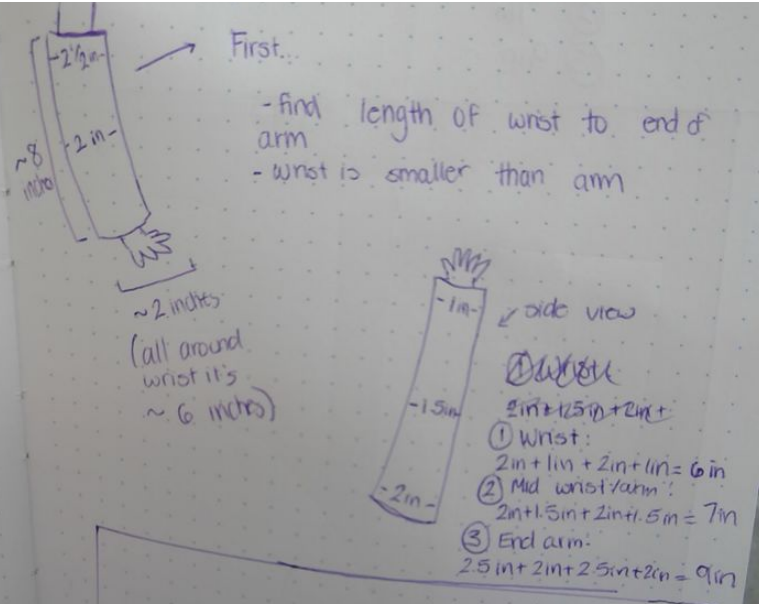 -2 1/2in-
First...
- find length of wrist to end of
arm
- wrist is smaller than arm
-2 in-
~8
inches
~2 inches
(all around
wrist it's
~ 6 inches)
-1in-
side view
-1.5in
-2in-
2in+1.5in+2in+
① Wrist:
2in+1in+2in+1in=6in
② Mid wrist/arm:
2in+1.5in+2in+1.5in=7in
③ End arm:
2.5in+2in+2.5in+2in=9in